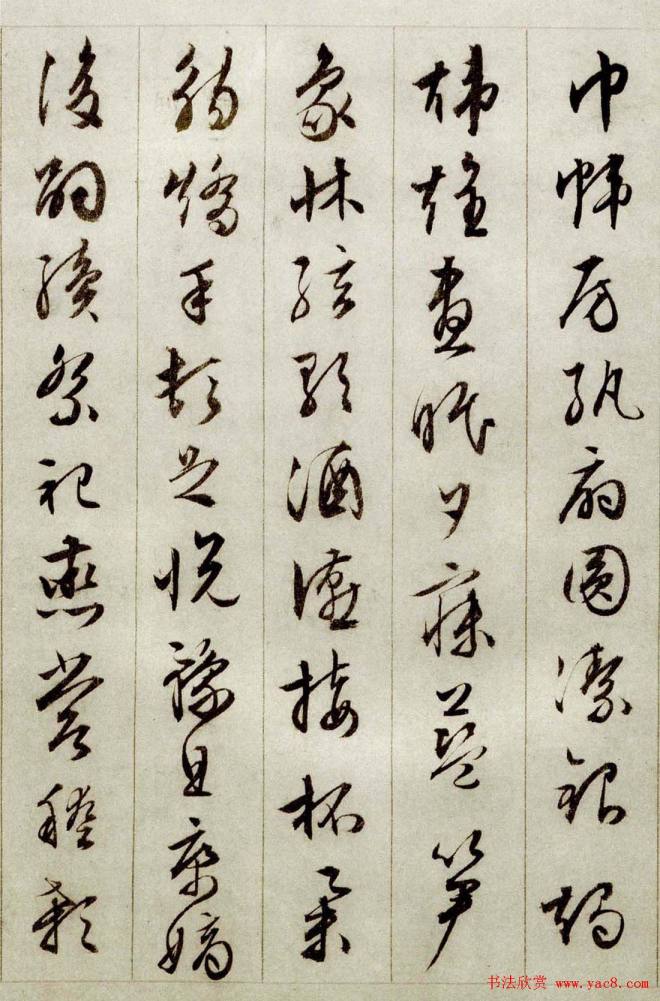 巾幃房紈扇圓潔銀燭
煒煌晝眠夕寐藍笋
象牀絃歌酒讌接杯舉
觴矯手頓足悅豫且康嫡
後嗣續祭祀蒸嘗稽顙
书法欣赏 www.yac8.com